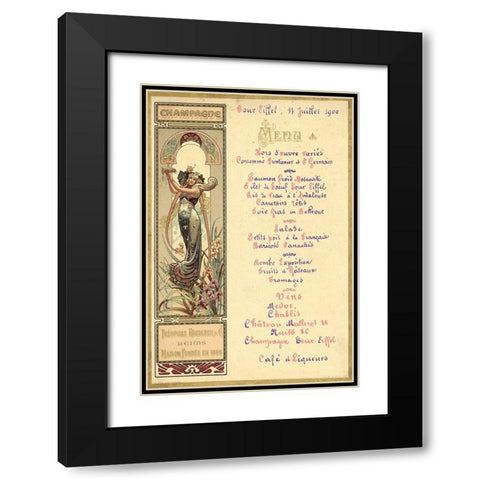 CHAMPAGNE
THÉOPHILE ROEDERER & Cº
REIMS
MAISON FONDÉE EN 1864
Tour Eiffel, 13 Juillet 1900
MENU
Hors d'œuvre Variés
Consommé Printanier & St Germain
Saumon Froid
Filet de Bœuf Tour Eiffel
Ris de Veau à l'Andalouse
Canetons Rôtis
Foie Gras en Bellevue
Salade
Petits pois à la Français
Haricots Panachés
Bombe Exposition
Fruits & Gâteaux
Fromages
Vins
Médoc,
Chablis
Château Malleret
Nuits
Champagne Tour Eiffel
Café & Liqueurs